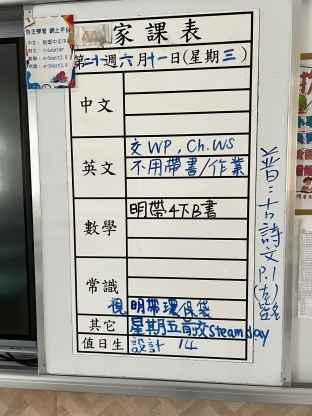 自主學習 網上平台
家課表
第二十週六月十一日(星期三)
中文
英文
交WP, Ch.WS
不用帶書/作業
數學
明帶4下B書
常識
視 明帶環保袋
其它
星期五前交Steam day
值日生
設計 14
普:古詩文P.1(左)簽名